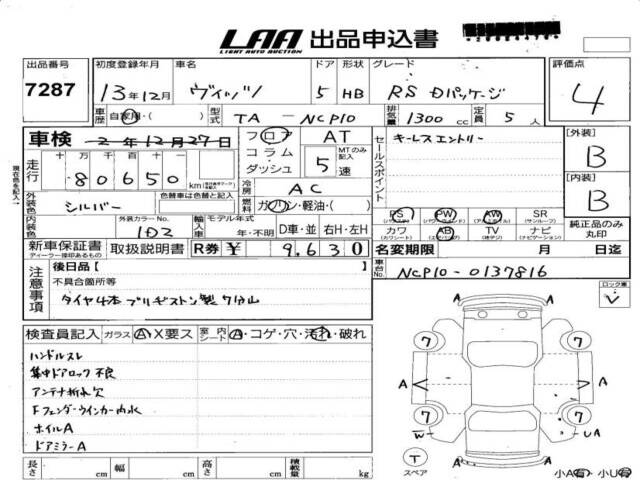 LAA 出品申込書
LIGHT AUTO AUCTION
出品番号 7287
初度登録年月 13年12月
車名 ヴィッツ
ドア 5
形状 HB
グレード RS Dパッケージ
評価点 4
車歴 自家用・( )
型式 TA - NCP10
排気量 1300 cc
定員 5 人
車検 2年12月27日
フロア コラム・ダッシュ
AT
MTのみ記入 5 速
セールスポイント
キーレスエントリー
[外装] B
[内装] B
現在色を記入
走行 十 万 千 百 十 一
80650 km
冷房 AC
外装色 シルバー
色替車は色替と記入
燃料 ガソリン・軽油・( )
PS PW AW SR
(サンルーフ)
カワ AB TV ナビ
(ナビゲーション)
純正品のみ丸印
内装色
外装カラーNo. 1D2
輸入車
モデル年式 年・不明
D車・並 右H・左H
新車保証書 取扱説明書
ディーラー捺印あるもの
R券 ¥ 9,630
名変期限 月 日迄
車台No. NCP10-0137816
注意事項
後日品 [ ]
不具合箇所等
タイヤ4本 ブリヂストン製 7分山
ロック車 レ
検査員記入 ガラス A・X要ス 室内シート A・コゲ・穴・汚れ・破れ
ハンドルスレ
集中ドアロック不良
アンテナ折れ欠
Fフェンダーウインカー内水
ホイルA
ドアミラーA
A A
7 7
A A A A
7 7
W UA
T
スペア
A
小A有・小U有
長さ cm 幅 cm 高さ cm 積載量 kg